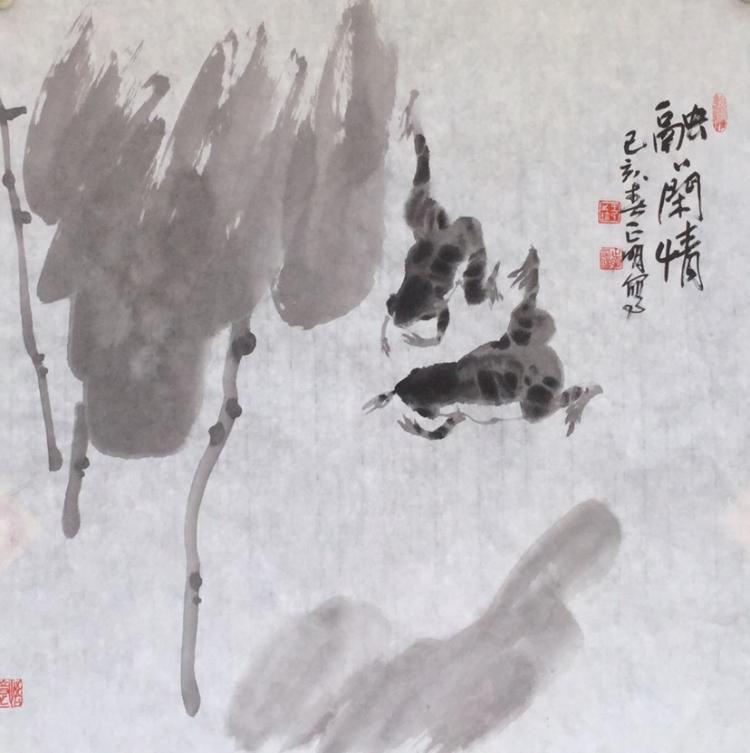 融〻閑情
己亥春正明寫